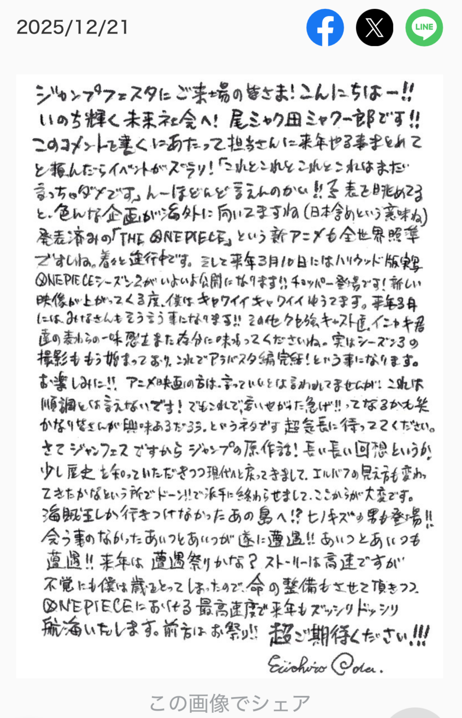 2025/12/21
LINE
ジャンプフェスタにご来場の皆さま!こんにちはー!!
いのち輝く未来社会へ!尾ミャク田ミャクー郎です!!
このコメントを書くにあたって担当さんに来年やる事まとめて
と頼んだらイベントがズラリ!「これとこれとこれとこれはまだ
言っちゃダメです」んーほとんど言えんのかい!!予表を眺めてる
と、色んな企画が海外に向いてますね(日本含めという意味ね)
発表済みの「THE ONE PIECE」という新アニメも全世界照準
ですしね。着々と進行中です。そして来年3月10日にはハリウッド版実写
ONE PIECEシーズン2がいよいよ公開になります!!チョッパー登場です!新しい
映像が上がってくる度、僕はキャワイイキャワイイゆうてます。来年3月
には、みなさんもそう言う事になります!!その他クセ強キャスト達、イニャキ君
達の麦わらの一味
味わってくださいね。実はシーズン3の
撮影ももう始まっており、これでアラバスタ編完結!という事になります。
お楽しみに!!アニメ映画の方は、言っていいとは言われてませんが、これは
順調とは言えないです!でもこれで言いせがまた急げ!!ってなるかも笑
かなり皆さんが興味あるだろう、というネタです 超気長に待っててください。
さてジャンフェスですからジャンプの原作話!長い長い回想というか
少し歴史を知っていただきつつ現代へと戻ってきまして、エルバフの見え方も変わっ
てきたかなという所でドーン!!で派手に終わらせまして、ここからが大変です。
海賊王しか行きつけなかったあの島へ!?ヒノキズの男も登場!!
会う事のなかったあいつとあいつが遂に遭遇!!あいつとあいつも
遭遇!!来年は遭遇祭りかな?ストーリーは高速ですが
不覚にも僕は歳をとってしまったので、命の整備もさせて頂きつつ
ONE PIECEにおける最高速度で来年もズッシリドッシリ
航海いたします。前方はお祭り!!超ご期待ください!!!
Eiichiro Oda.
この画像でシェア